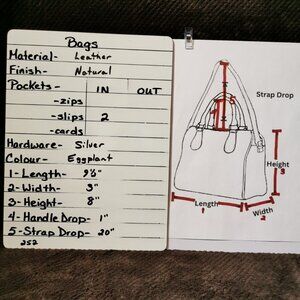 Bags
Material- Leather
Finish- Natural
Pockets- IN OUT
-zips
-slips 2
-cards
Hardware- Silver
Colour- Eggplant
1-Length- 9½"
2-Width- 3"
3-Height- 8"
4-Handle Drop- 1"
5-Strap Drop- 20"
252
Strap Drop
Height
3
Length
1
Width
2